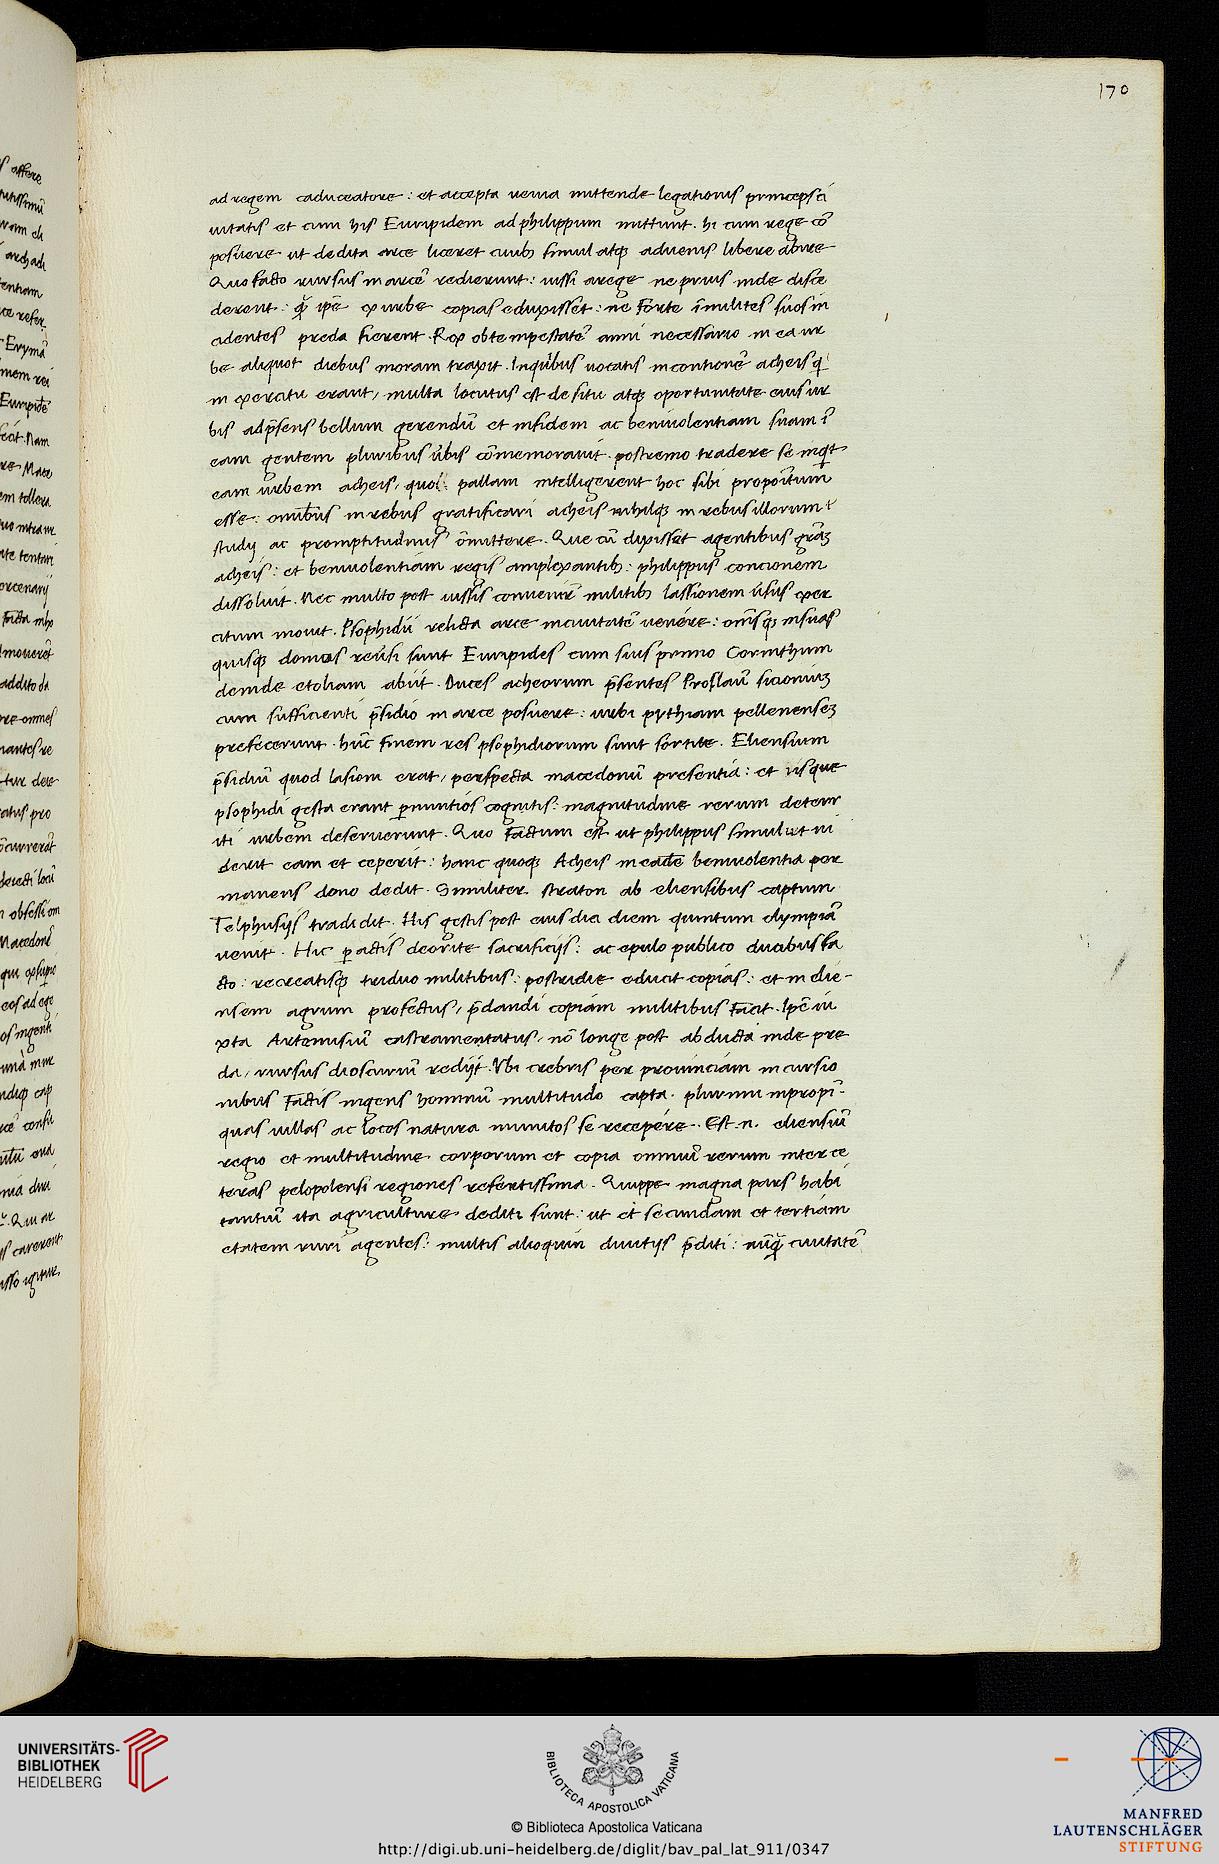 170
ad regem caduceatore : et accepta uenia mittende legationis principes ci
uitatis et cum his Euripidem ad philippum mittunt . hi cum rege cō
posuere ut dedita arce liceret ciuib; simul atq; aduenis libere abire
Quo facto rursus in arcē redierunt : iussi a rege ne prius inde disce
derent : q̃ ip̄e ex urbe copias eduxisset : ne forte ī milites suos in
cidentes preda fierent . Rex ob tempestatē anni necessario in ea ur
be aliquot diebus moram traxit . In quibus uocatis in contionē acheis q
in exercitu erant , multa locutus est de situ atq; oportunitate eius ur
bis ad p̄sens bellum gerendū et in fidem ac beniuolentiam suam ī
eam gentem pluribus u̇bis cōmemorauit . postremo tradere se inqt
eam urbem acheis , quo pallam intelligerent hoc sibi propositum
esse : omībus in rebus gratificari acheis nihilq; in rebus illorum
studij ac promptitudinis omittere . Que cū dixisset agentibus grās
acheis : et beniuolentiam regis amplexantib; : philippus concionem
dissoluit . Nec multo post iussis conuenir̄ militib; lassionem uersus exer
citum mouit . Psophidii relicta arce in ciuitatē uenere : om̄sq; in suas
quisq; domos reuersi sunt Euripides cum suis primo Corinthum
deinde etoliam abiit . Duces acheorum p̄sentes Proslaū sicioniuz
cum sufficienti p̄sidio in arce posuere : urbi pythiam pellenensez
prefecerunt . hūc finem res psophidiorum sunt sortite . Eliensium
p̄sidiū quod lasioni erat , perspecta macedonū presentia : et iisque
psophidi gesta erant p nuntios cognitis : magnitudine rerum deterr
iti urbem deseruerunt . Quo factum est ut philippus simul ut ui
derit eam et ceperit : hanc quoq; Acheis in eadē beniuolentia per
manens dono dedit . Similiter . straton ab eliensibus captum
Telphusijs tradidit . His gestis post eius diei diem quintum olympiā
uenit . Hic p actis deo rite sacrificijs : ac epulo publico ducibus fa
cto : recreatisq; triduo militibus : postridie educit copias : et in elie-
nsem agrum profectus , p̄dandi copiam militibus facit . Ip̄e iu
xta Artemisiū castramentatus , nō longe post abducta inde pre
da , rursus dioscuriū redijt . Vbi crebris per prouinciam incursio
nibus factis ingens hominū multitudo capta . plurimi in propī-
quas uillas ac locos natura munitos se recepere . Est .n. eliensiū
regio et multitudine corporum et copia omniū rerum inter ce
teras pelopolensi regiones refertissima . Quippe magna pars habi
tantiū ita agriculture dediti sunt : ut et secundam et tertiam
etatem ruri agentes : multis alioquin diuitijs p̄diti : nūq̃ ciuitatē
UNIVERSITÄTS-
BIBLIOTHEK
HEIDELBERG
BIBLIOTECA APOSTOLICA VATICANA
© Biblioteca Apostolica Vaticana
http://digi.ub.uni-heidelberg.de/diglit/bav_pal_lat_911/0347
MANFRED
LAUTENSCHLÄGER
STIFTUNG